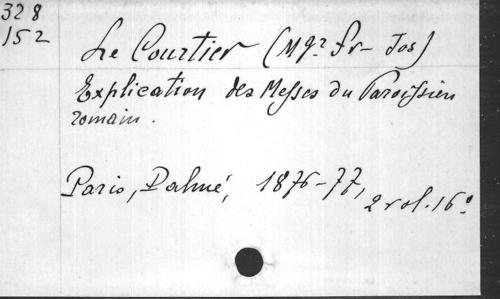 328
152
Le Courtier (Mgr Fr- Jos)
Explication des Messes du Paroissien
romain.
Paris, Palmé, 1876-77,
2 vol. 16º